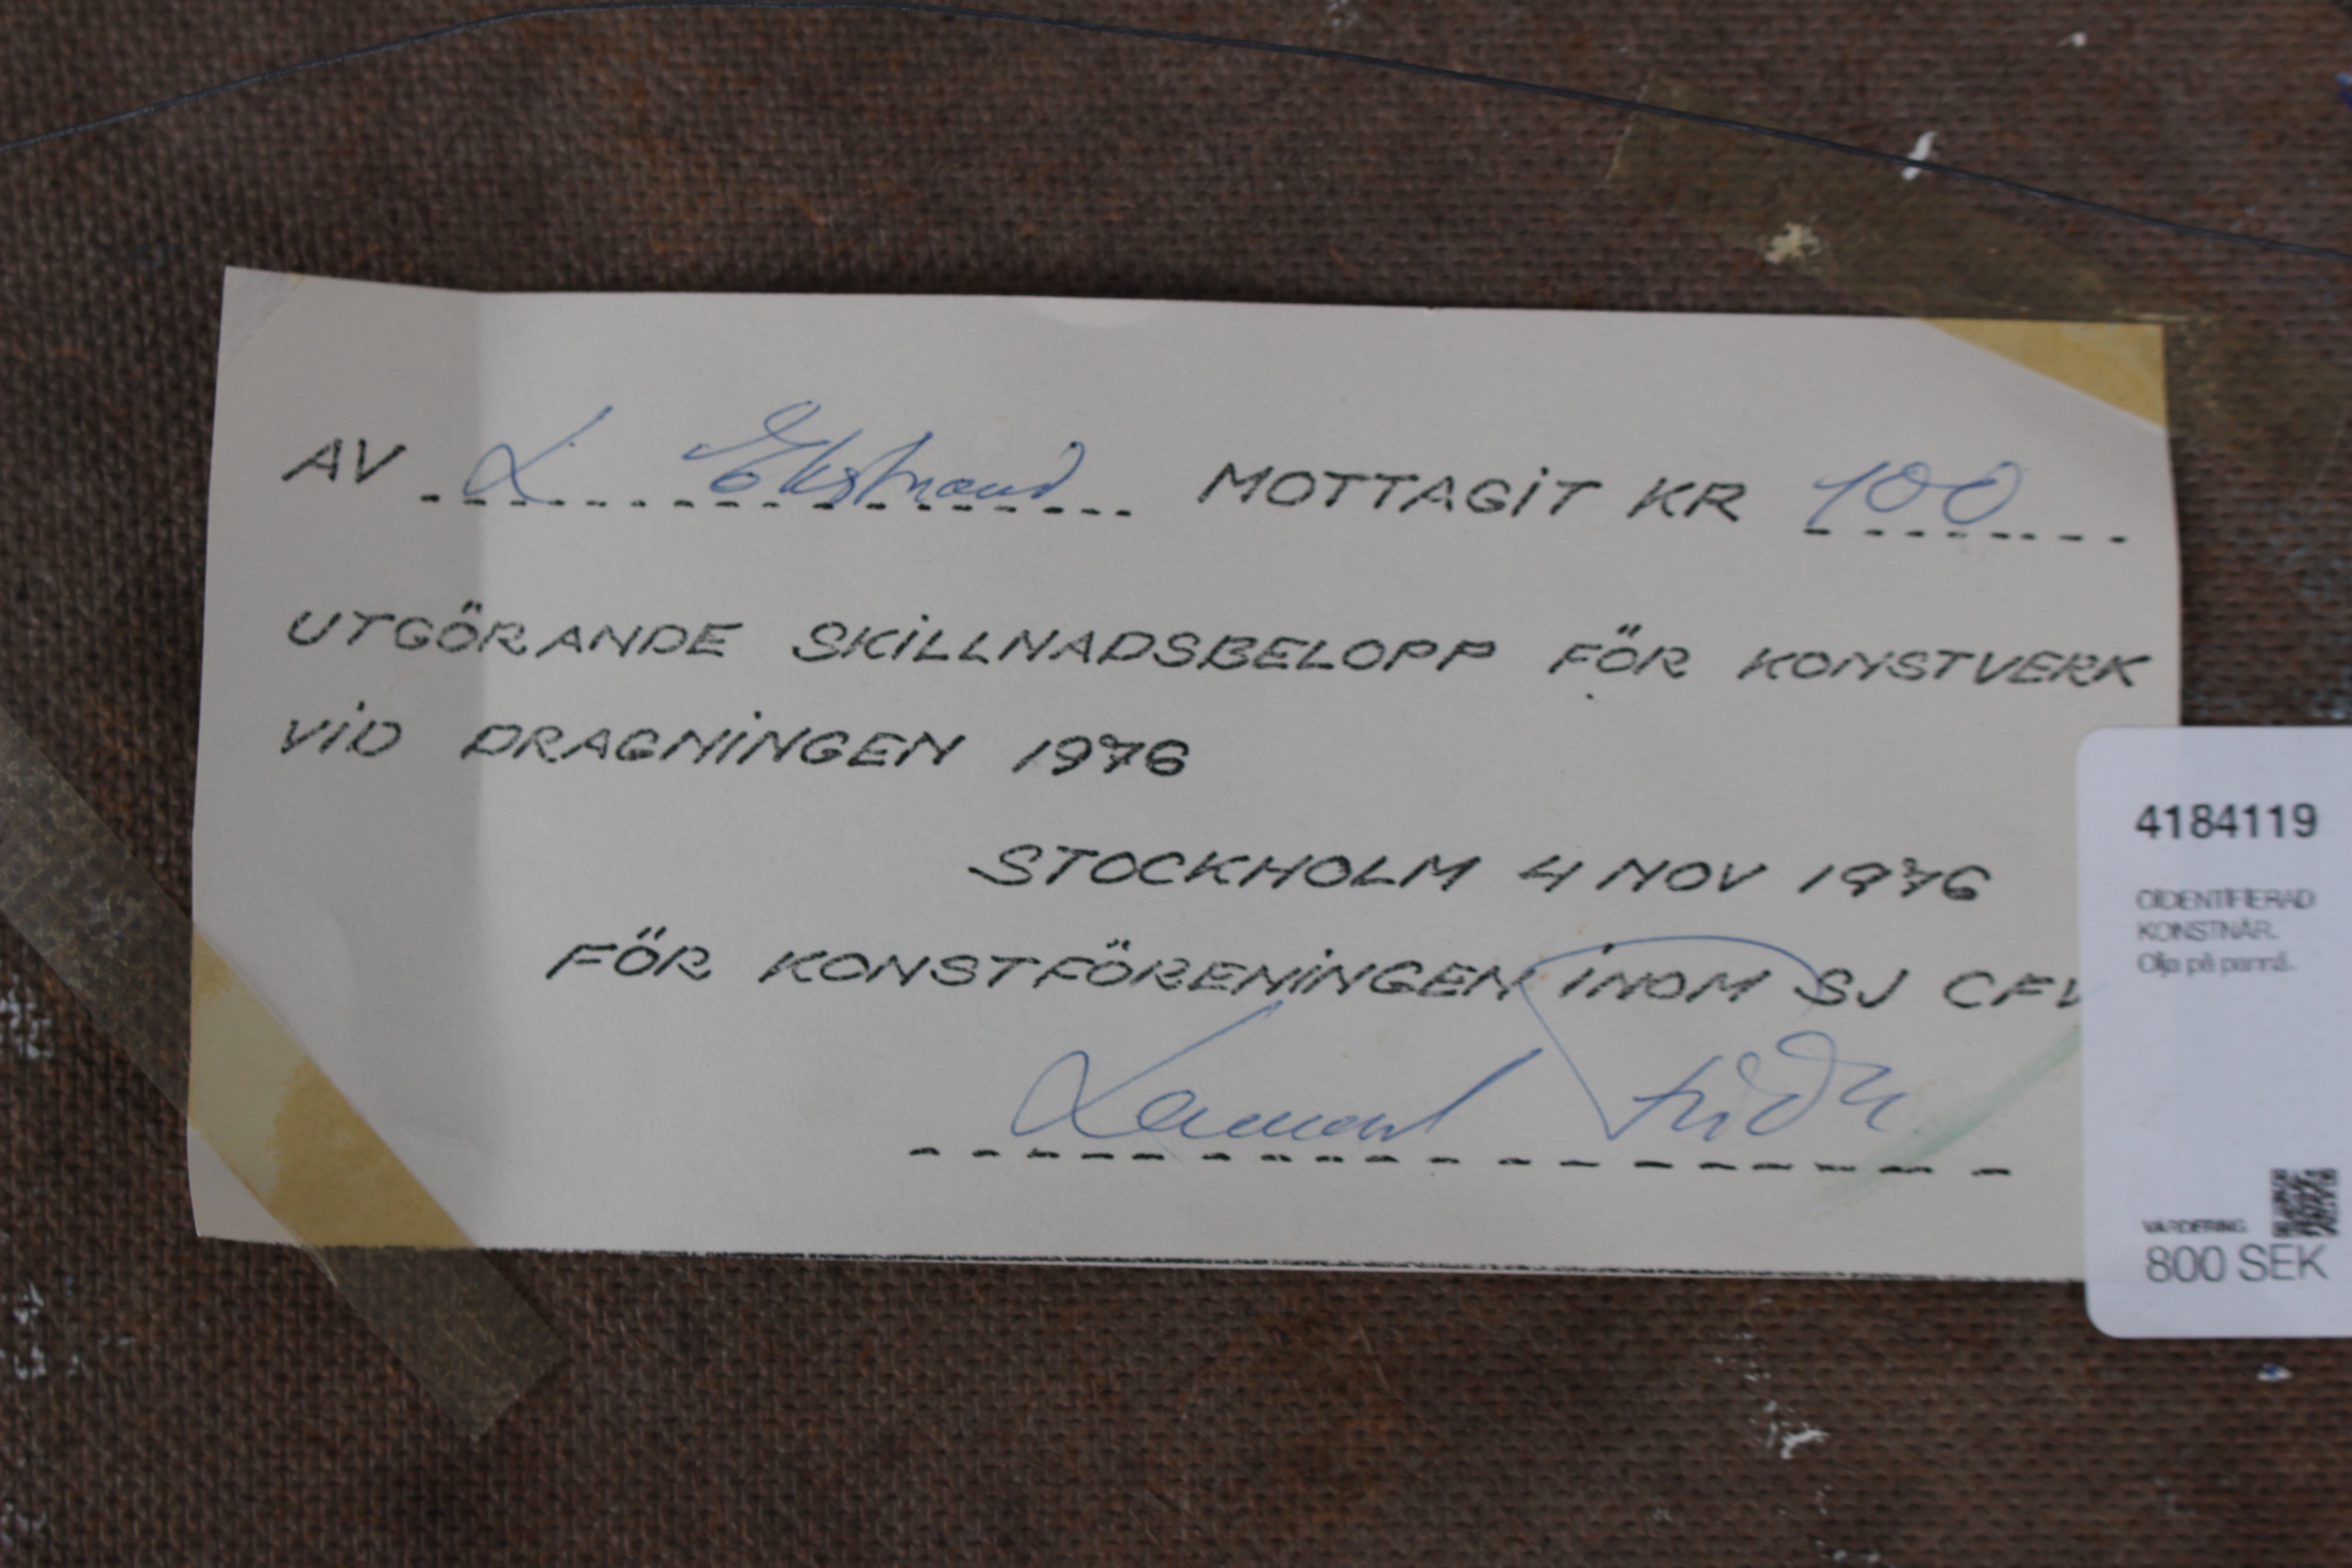 AV L Ekstrand MOTTAGIT KR 100
UTGÖRANDE SKILLNADSBELOPP FÖR KONSTVERK
VID DRAGNINGEN 1976
STOCKHOLM 4 NOV 1976
FÖR KONSTFÖRENINGEN INOM SJ
Lennart
4184119
OIDENTIFIERAD
KONSTNÄR.
Olja på pannå.
VÄRDERING
800 SEK